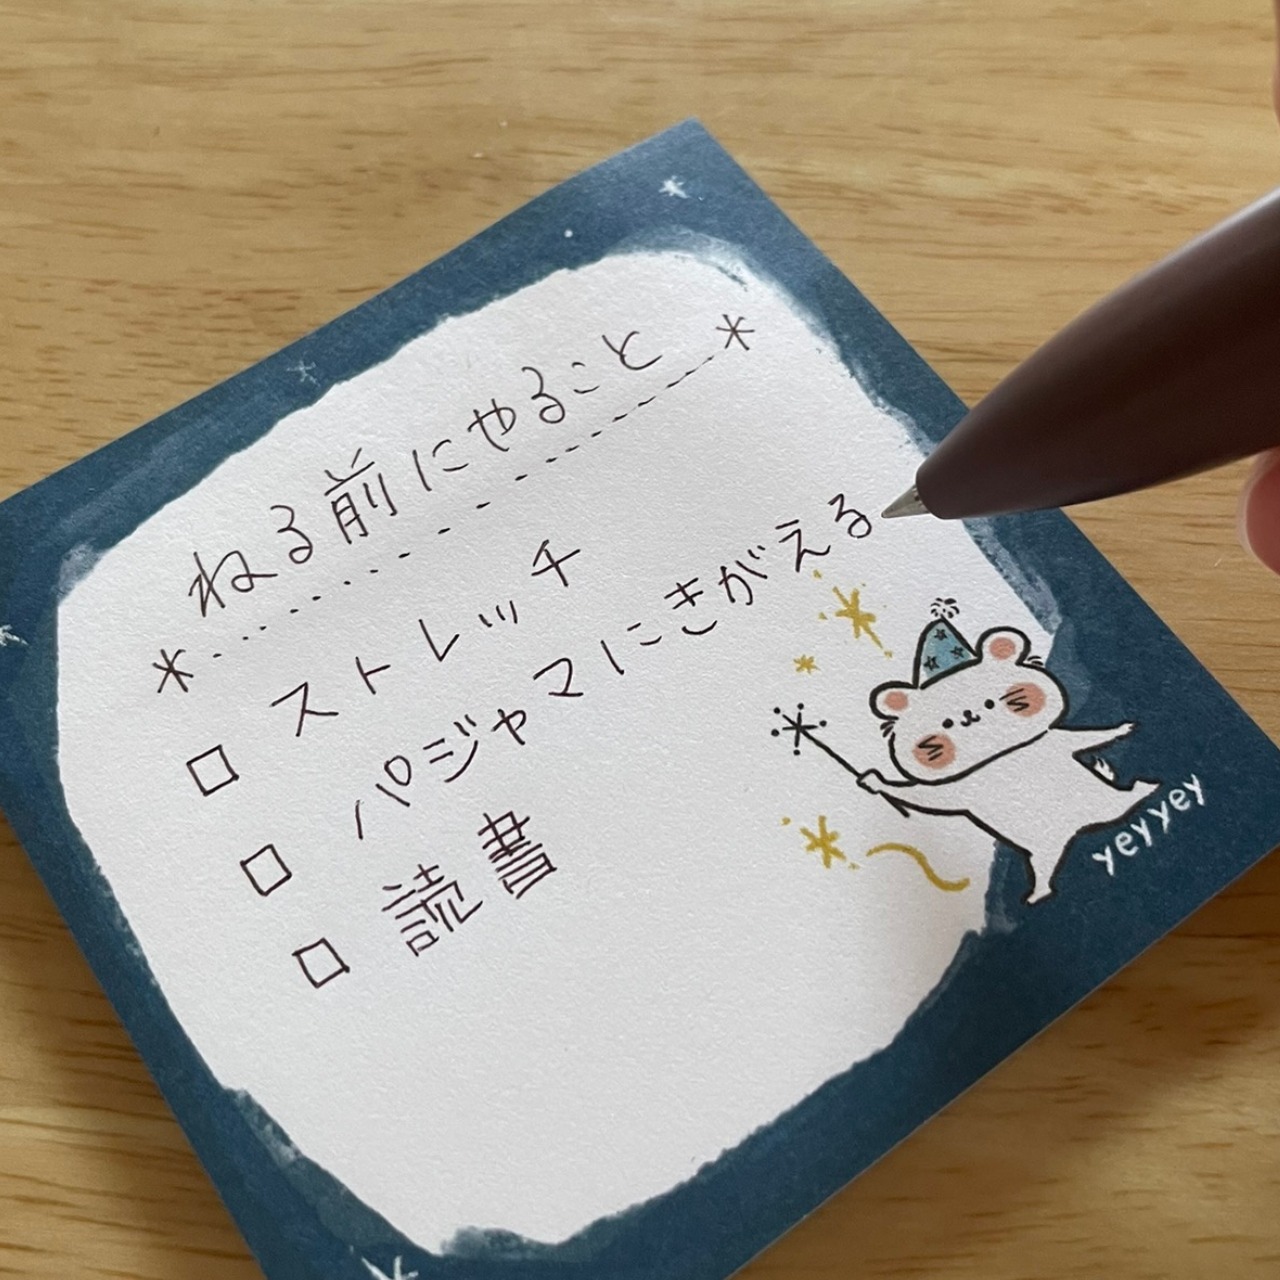 ねる前にやること
□ ストレッチ
□ パジャマにきがえる
□ 読書
yeyyey